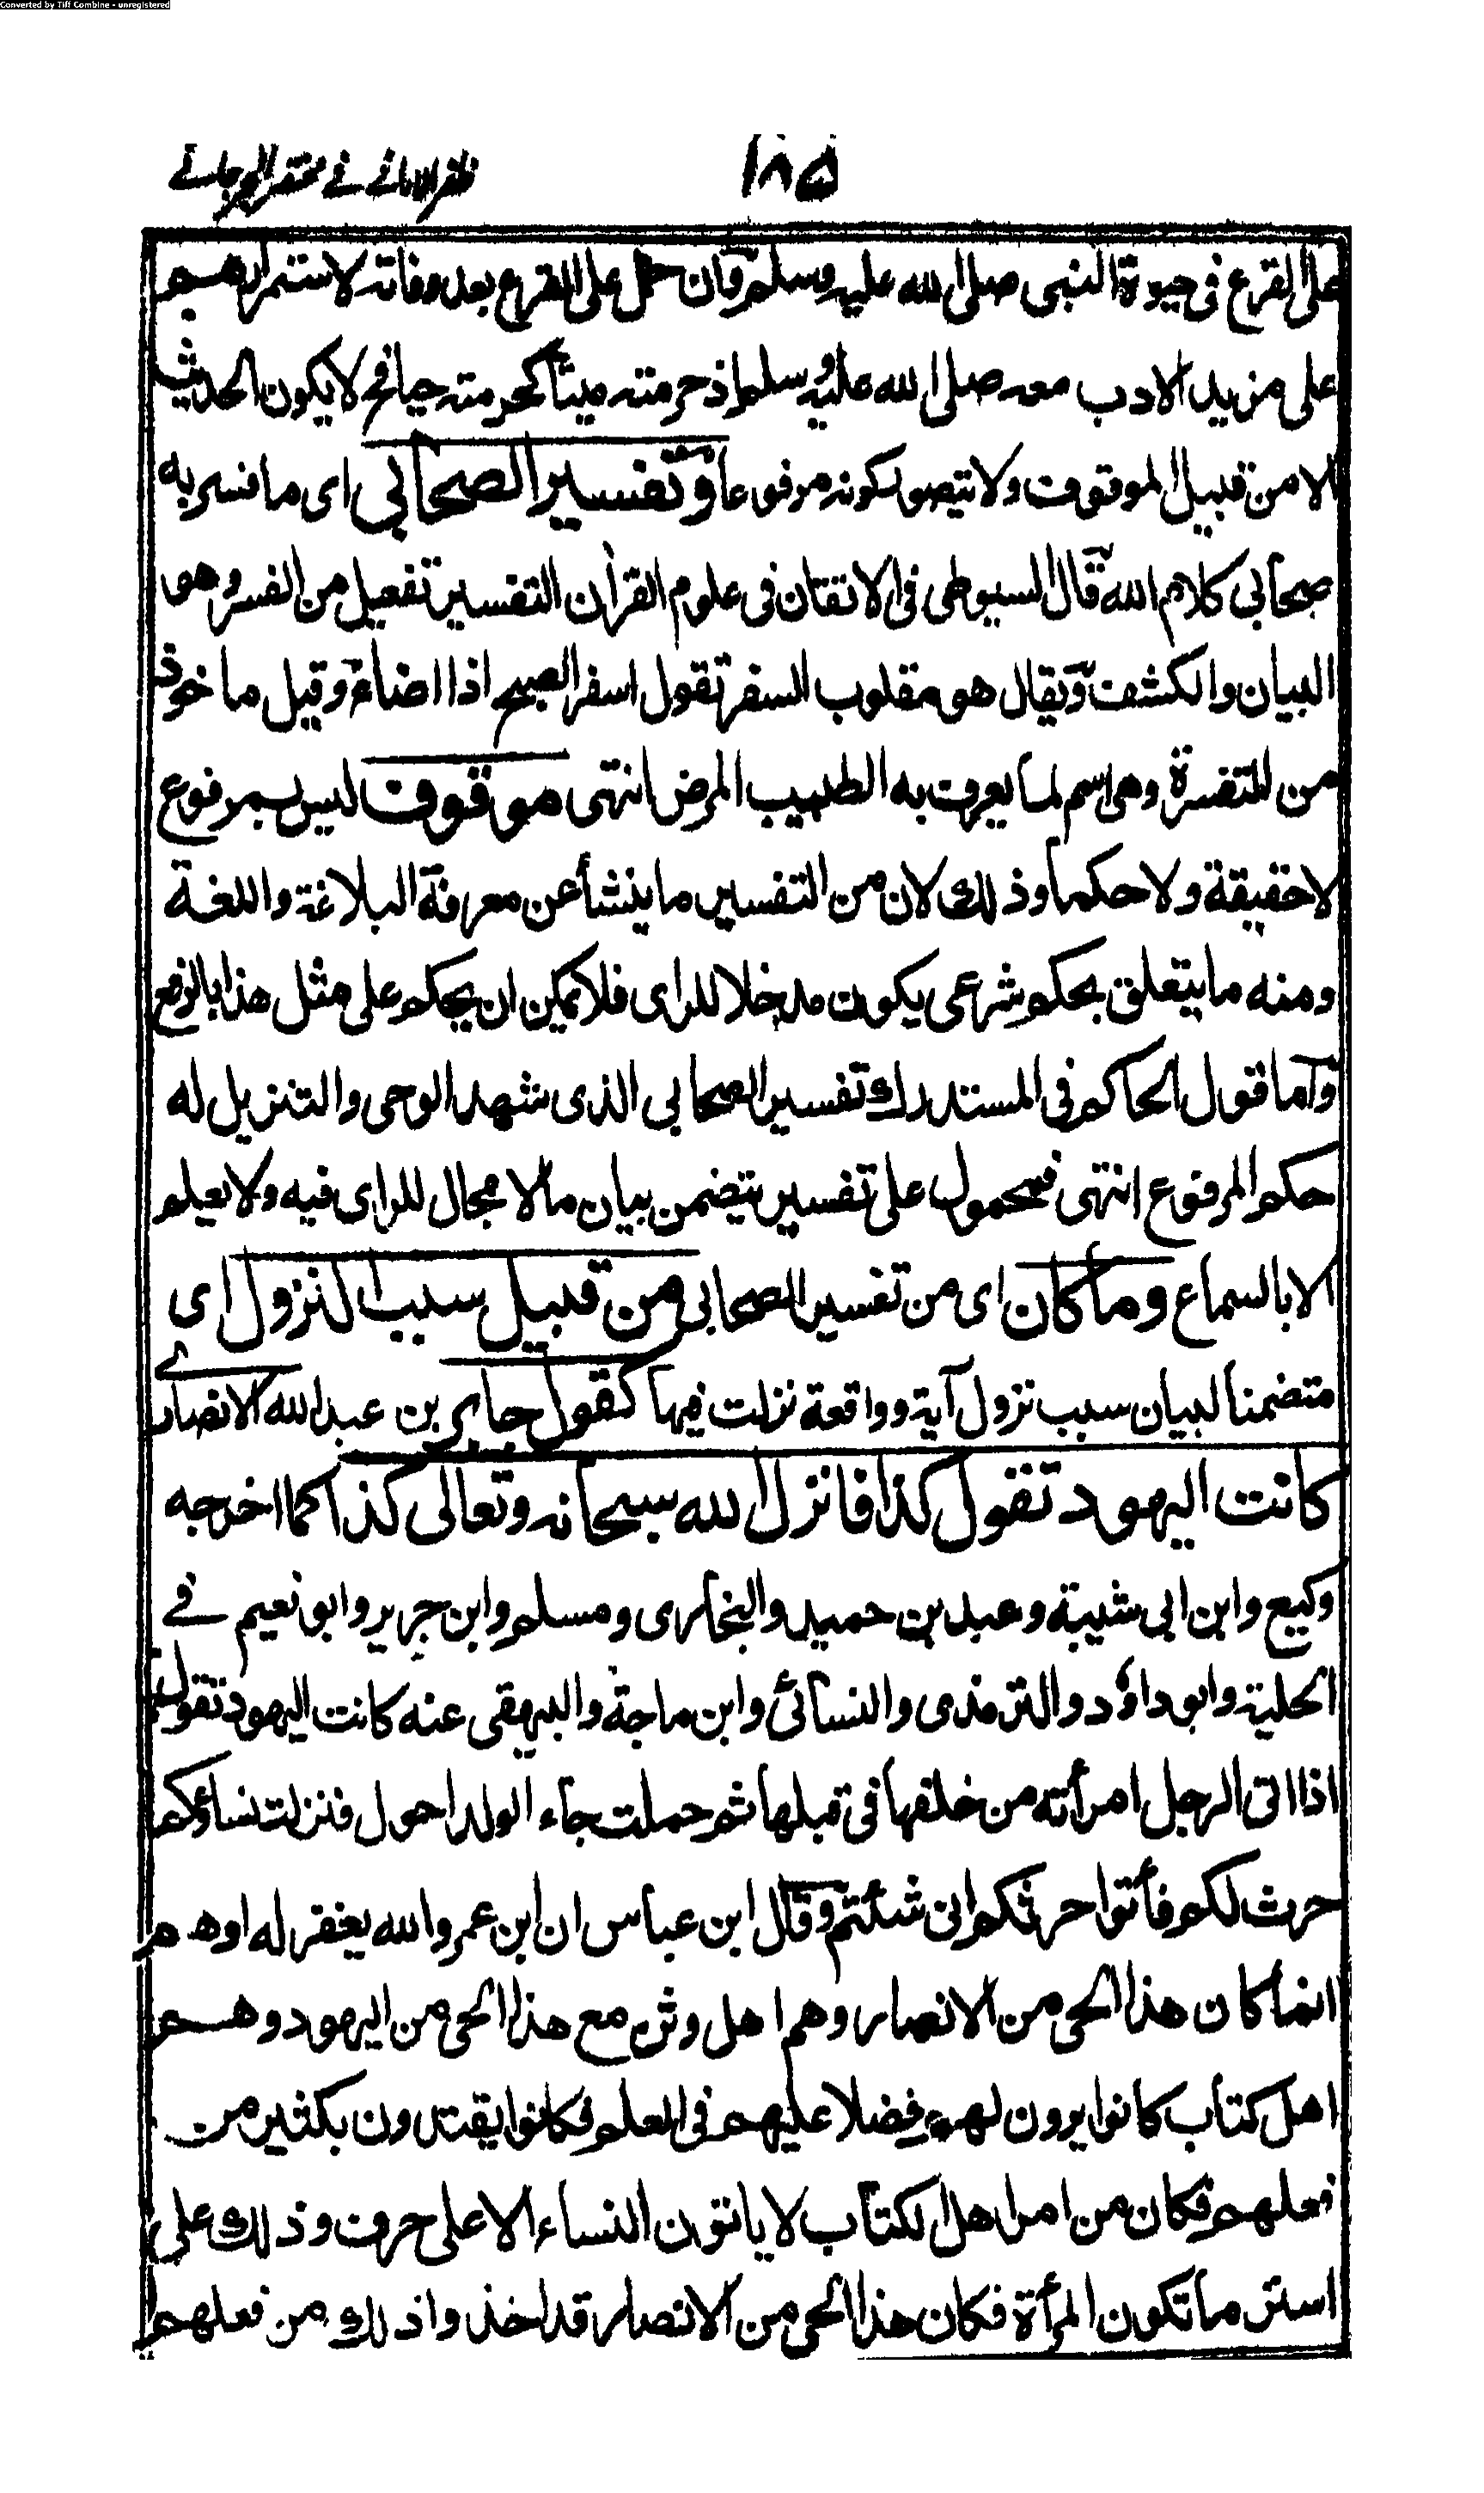 Converted by Tiff Combine - unregistered
١٨٥
ظفر الامانے فے مختصر الجرجانے
على القرع فى حيوة النبى صلى الله عليه وسلم وان حمل على القرع بعد وفاته لاستمرارهم
على مزيد الادب معه صلى الله عليه وسلم اذ حرمته ميتا كحرمته حيا فح لا يكون الحديث
الا من قبيل الموقوف ولا يتصور كونه مرفوعا وتفسير الصحابي اى ما فسر به
صحابي كلام الله قال السيوطى فى الاتقان فى علوم القرأن التفسير تفعيل من الفسر وهو
البيان والكشف ويقال هو مقلوب السفر تقول اسفر الصبح اذا اضاء وقيل ماخوذ
من التفسرة وهى اسم لما يعرف به الطبيب المرض انتهى موقوف ليس بمرفوع
لا حقيقة ولا حكما وذلك لان من التفسير ما ينشأ عن معرفة البلاغة واللغة
ومنه ما يتعلق بحكم شرعى يكون مدخلا للراى فلا يمكن ان يحكم على مثل هذا بالرفع
وأما قول الحاكم فى المستدرك تفسير الصحابي الذى شهد الوحى والتنزيل له
حكم المرفوع انتهى فمحمول على تفسير يتضمن بيان مالا مجال للراى فيه ولا يعلم
الا بالسماع وما كان اى من تفسير الصحابى من قبيل سبب النزول اى
متضمنا لبيان سبب نزول آية وواقعة نزلت فيها كقول جابر بن عبد الله الانصارے
كانت اليهود تقول كذا فانزل الله سبحانه وتعالى كذا كما اخرجه
وكيع وابن ابى شيبة وعبد بن حميد والبخارى ومسلم وابن جرير وابو نعيم فے
الحلية وابو داؤد والترمذى والنسائى وابن ماجة والبيهقى عنه كانت اليهود تقول
اذا اتى الرجل امرأته من خلفها فى قبلها ثم حملت جاء الولد احول فنزلت نساؤكم
حرث لكم فأتوا حرثكم انى شئتم وقال ابن عباس ان ابن عمر والله يغفر له اوهم
انما كان هذا الحى من الانصار وهم اهل وثن مع هذا الحى من اليهود وهم
اهل كتاب كانوا يرون لهم فضلا عليهم فى العلم فكانوا يقتدون بكثير من
فعلهم فكان من امر اهل الكتاب لا ياتون النساء الا على حرف وذلك على
استر ما تكون المرأة فكان هذا الحى من الانصار قد اخذوا ذلك من فعلهم